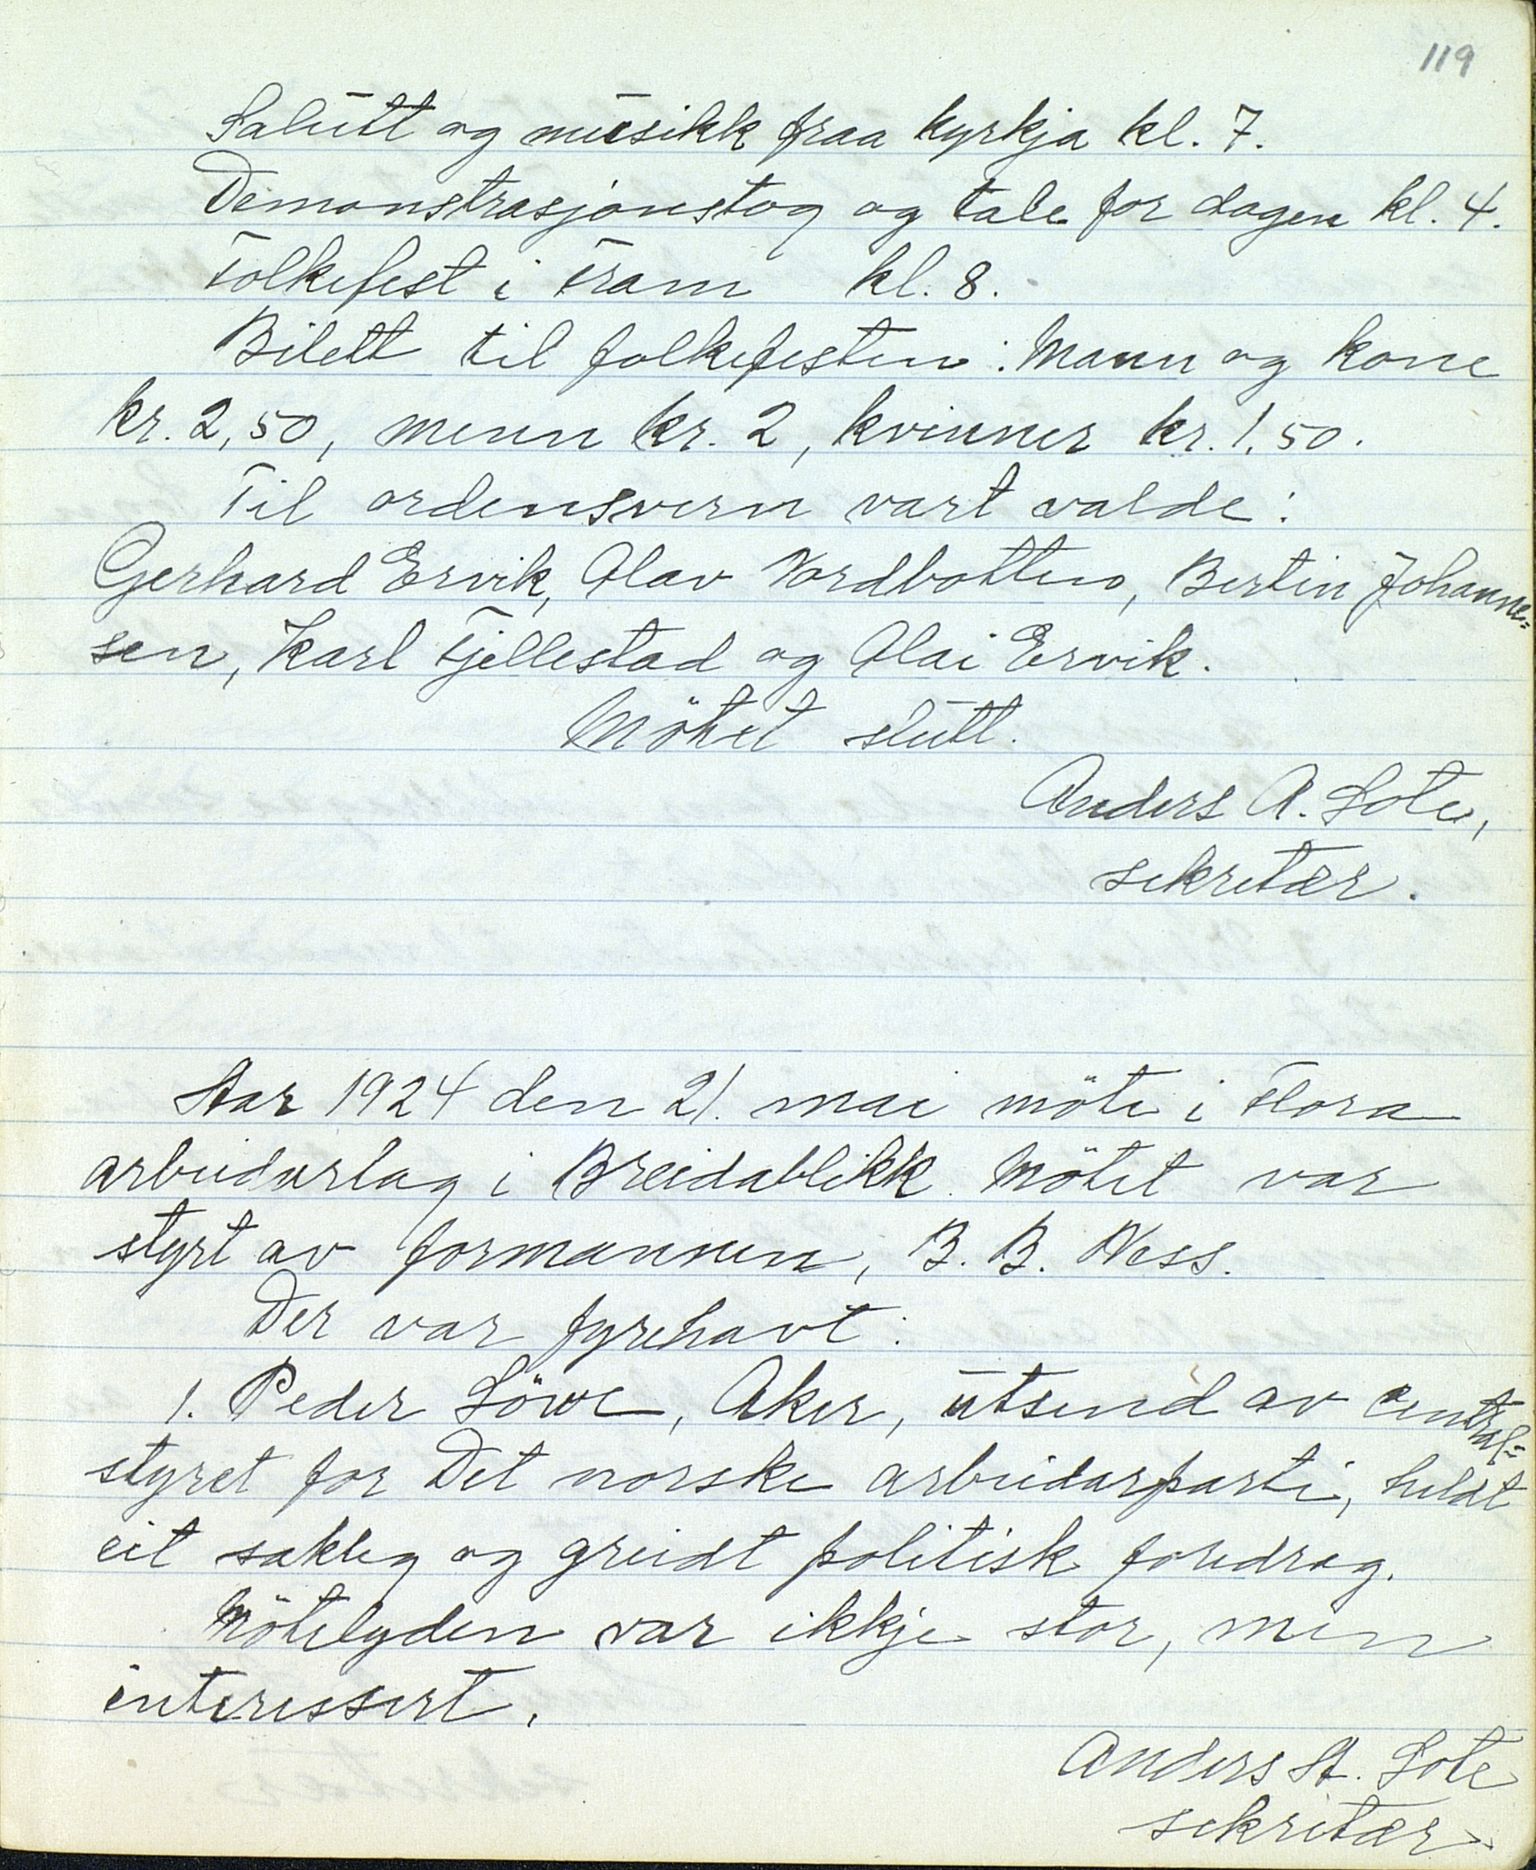 119
Salutt og musikk fraa kyrkja kl. 7.
Demonstrasjonstog og tale for dagen kl. 4.
Folkefest i Fram kl. 8.
Bilett til folkefesten: Mann og kone
kr. 2,50, menn kr. 2, kvinner kr. 1,50.
Til ordensvern vart valde:
Gerhard Ervik, Olav Nordbotten, Bertin Johanne=
sen, Karl Fjellestad og Olai Ervik.
Mötet slutt.
Anders A. Lote,
sekretær.
Aar 1924 den 21. mai möte i Flora
arbeidarlag i Breidablikk. Mötet var
styrt av formannen, B. B. Ness.
Der var fyrehavt:
1. Peder Löwe, Aker, utsend av central=
styret for Det norske arbeidarparti, heldt
eit sakleg og greidt politisk foredrag.
Mötelyden var ikkje stor, men
interessert.
Anders A. Lote
sekretær